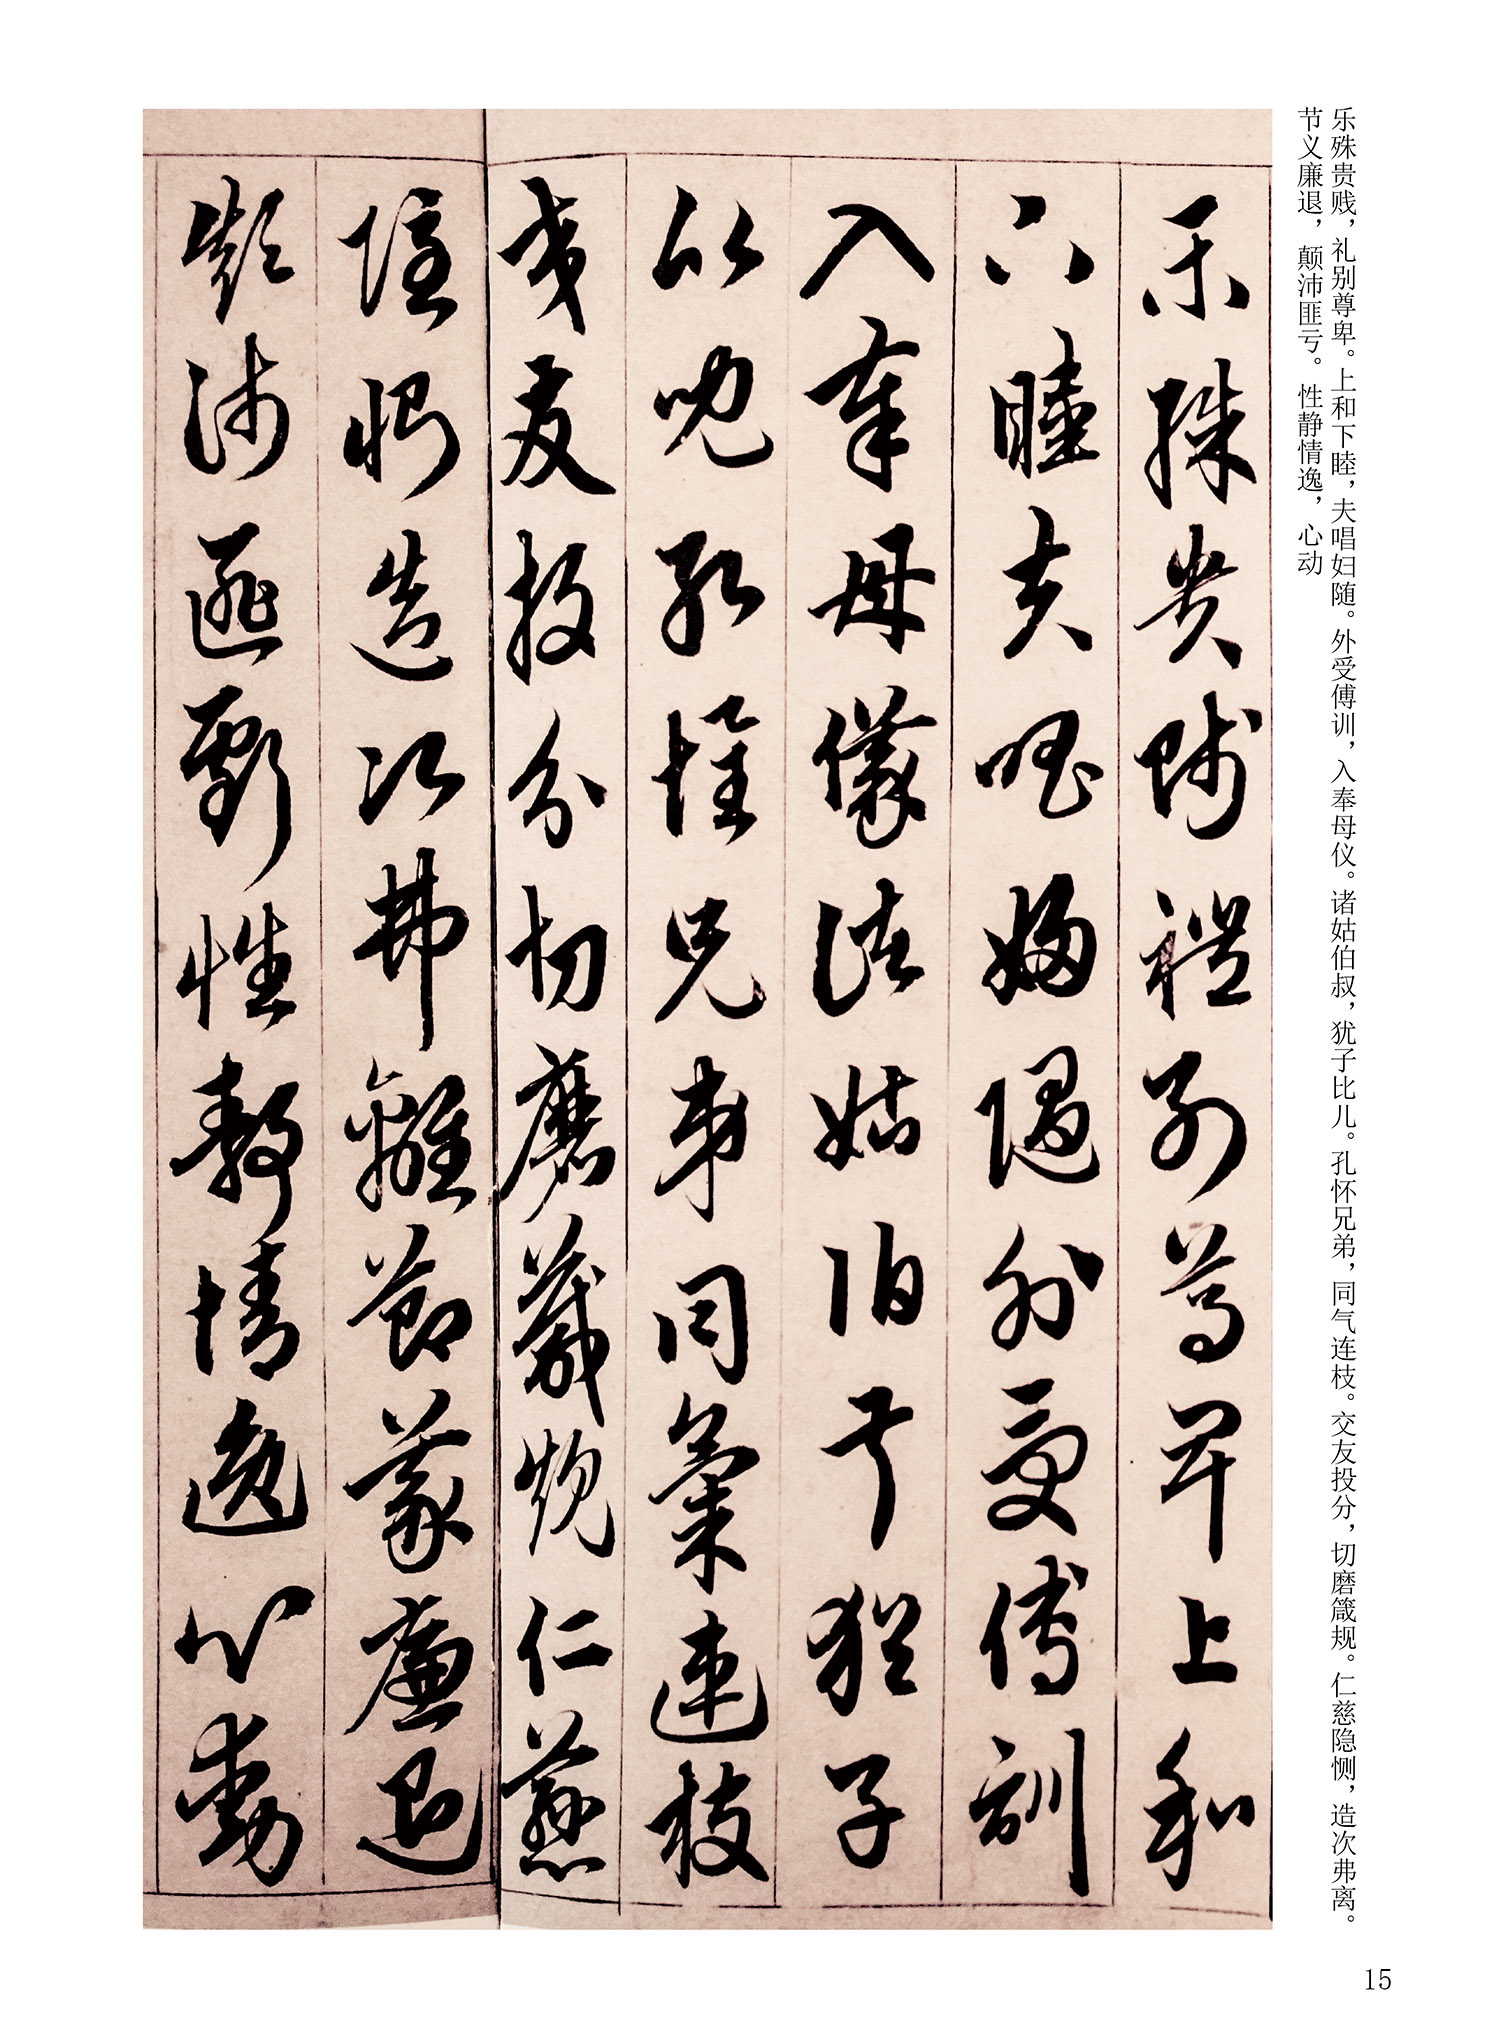 乐殊贵贱，礼别尊卑。上和下睦，夫唱妇随。外受傅训，入奉母仪。诸姑伯叔，犹子比儿。孔怀兄弟，同气连枝。交友投分，切磨箴规。仁慈隐恻，造次弗离。
节义廉退，颠沛匪亏。性静情逸，心动
乐殊贵贱礼别尊卑上和
下睦夫唱婦随外受傅訓
入奉母儀諸姑伯叔猶子
比兒孔懷兄弟同氣連枝
交友投分切磨箴規仁慈
隱恻造次弗離節義廉退
顛沛匪虧性静情逸心動
15